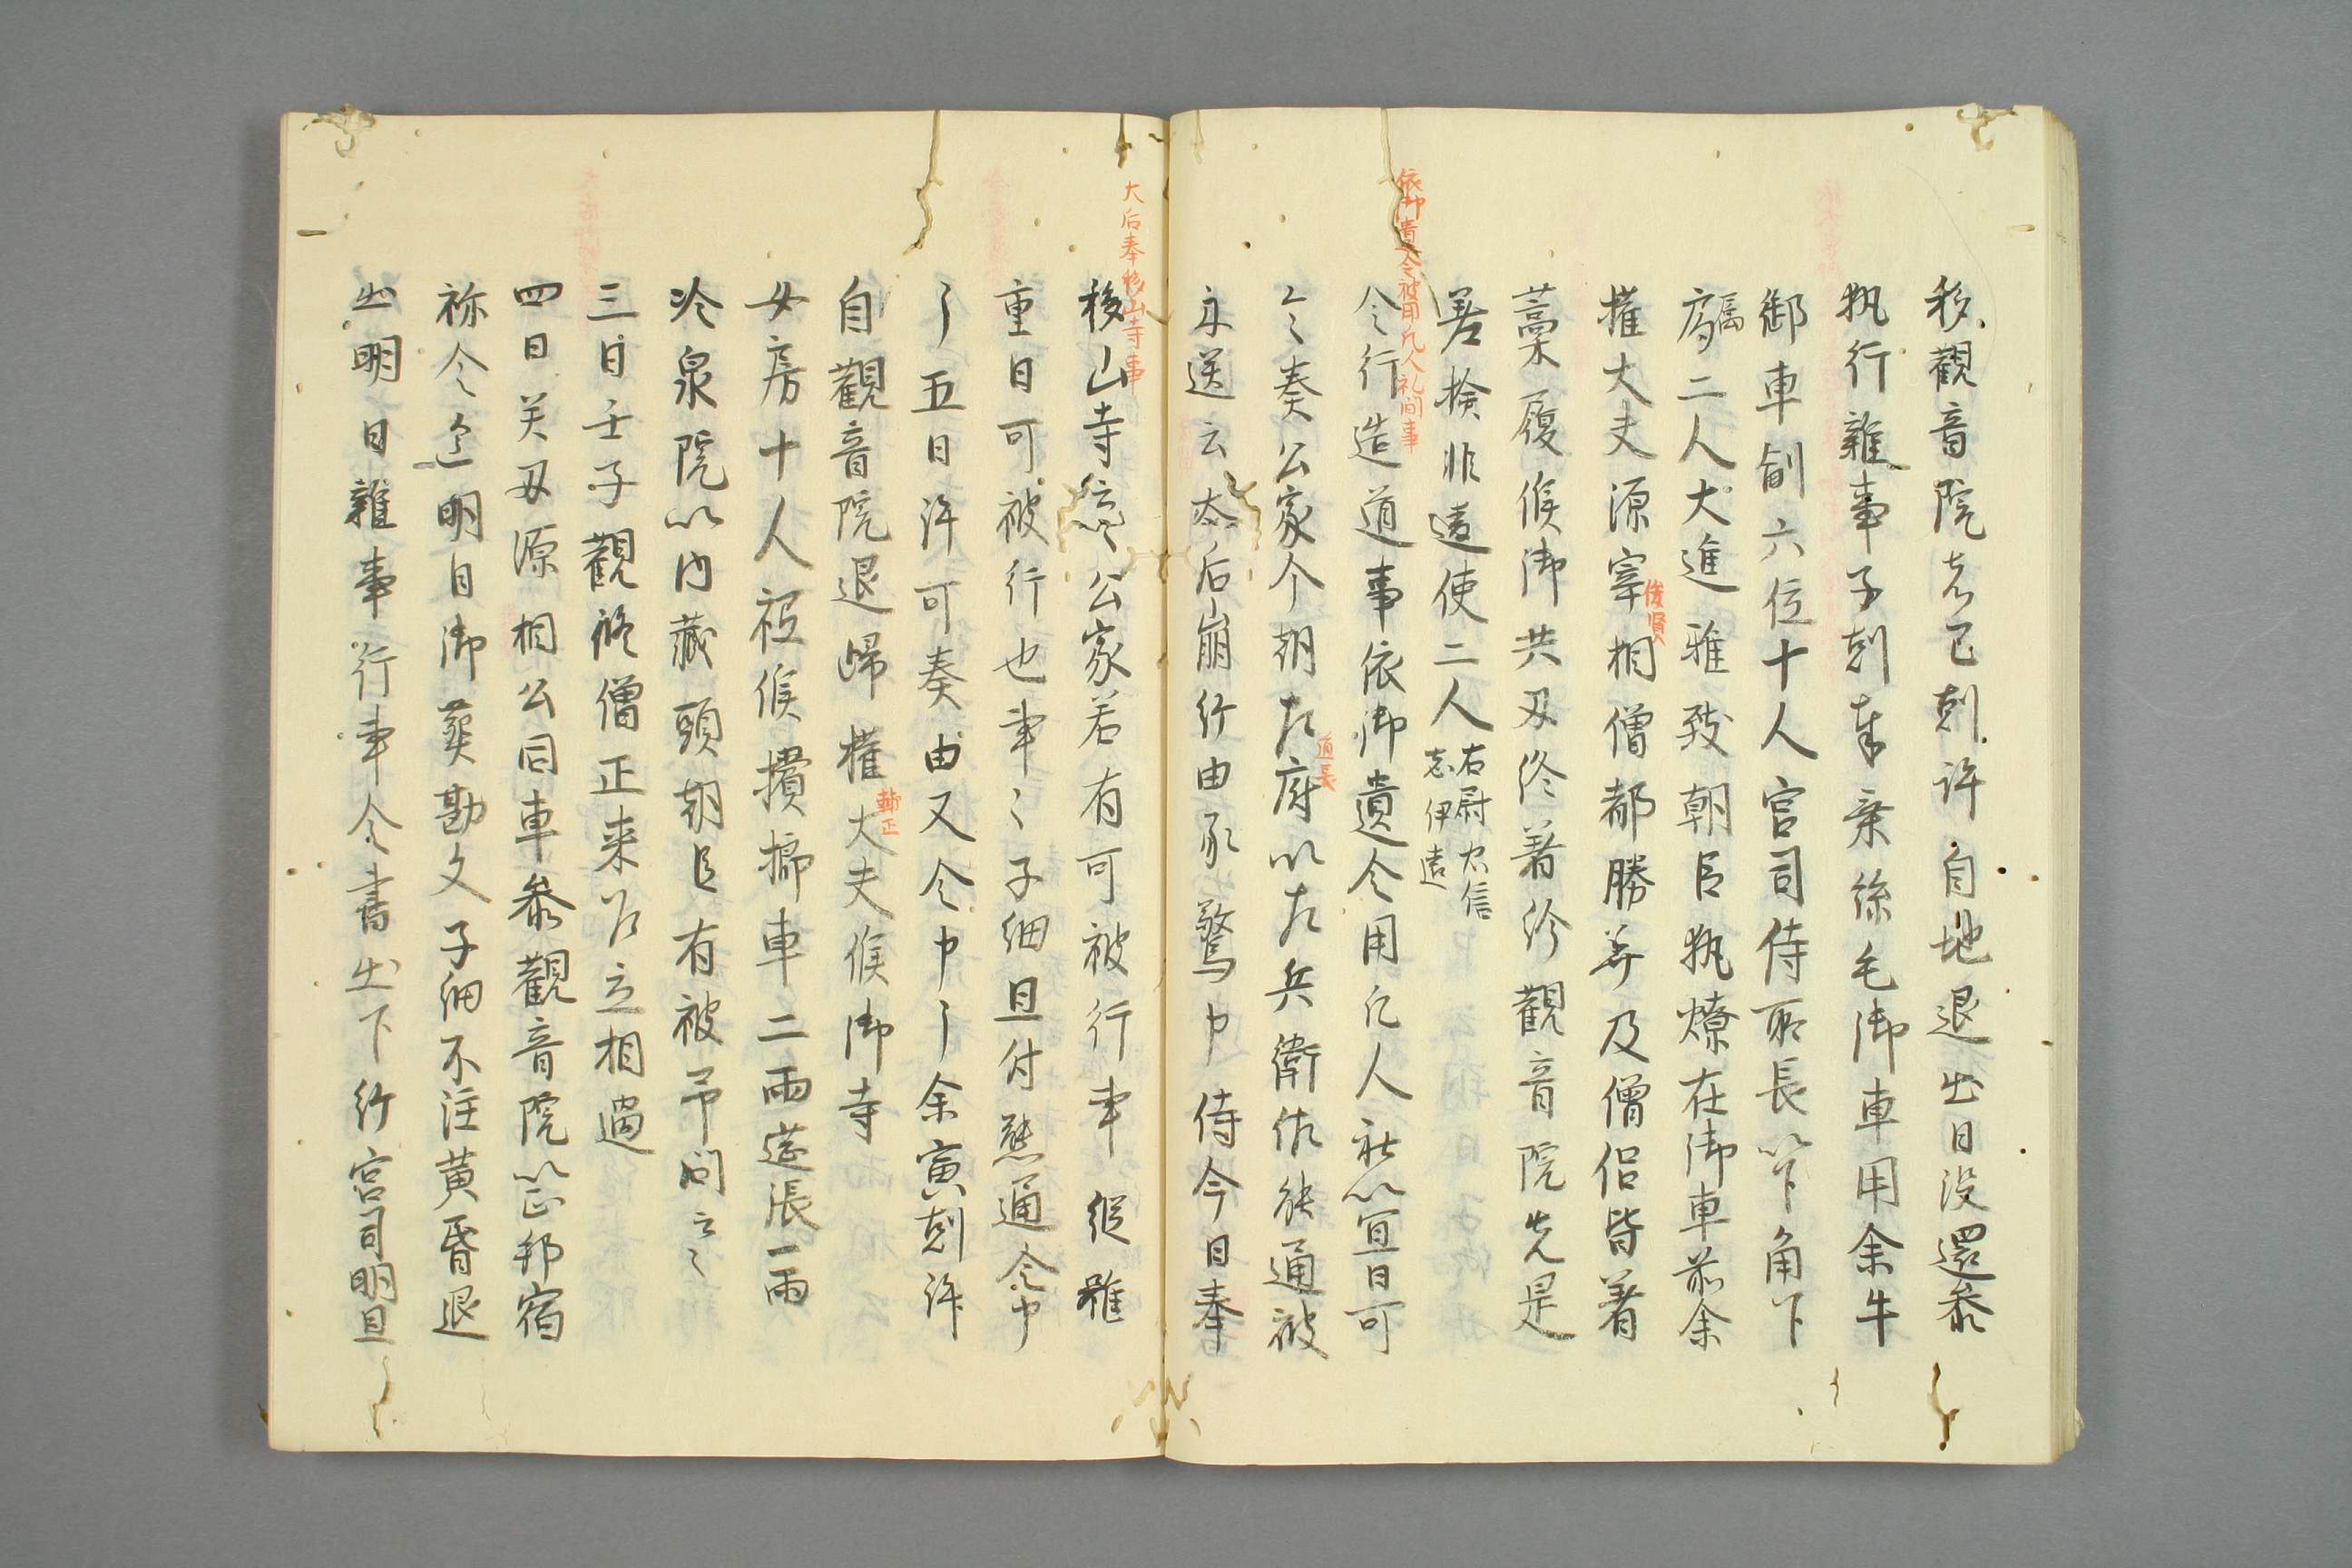 移觀音院者巳剋許自地退出日没還參
執行雜事子剋奉乗絲毛御車用余牛
御車副六位十人宮司侍所長以下角下
屬二人大進雅致朝臣執燎在御車前余
權大夫源宰相僧都勝笇及僧侶皆着
俊賢
藁履候御共丑終着給觀音院先是
差檢非違使二人右尉忠信志伊遠
依御遺令被用凡人礼間事
令行造道事依御遺令用凡人礼以宜日可
令奏公家今朝左府以左兵衛佐能通被
道長
示送云太后崩給由承驚申侍今日奉
大后奉移山寺事
移山寺云々公家若有可被行事縦雖
重日可被行也事々子細且付熊通令申
了五日許可奏由又令申了余寅剋許
自觀音院退歸權大夫候御寺
輔正
女房十人被候攢擲車二兩莚張一兩
冷泉院以内藏頭朝臣有被弔問云々
三日壬子觀修僧正来乍立相遇
四日癸丑源相公同車參觀音院以正邦宿
祢令進明日御葬勘文子細不注黄昏退
出明日雜事行事令書出下給宮司明旦